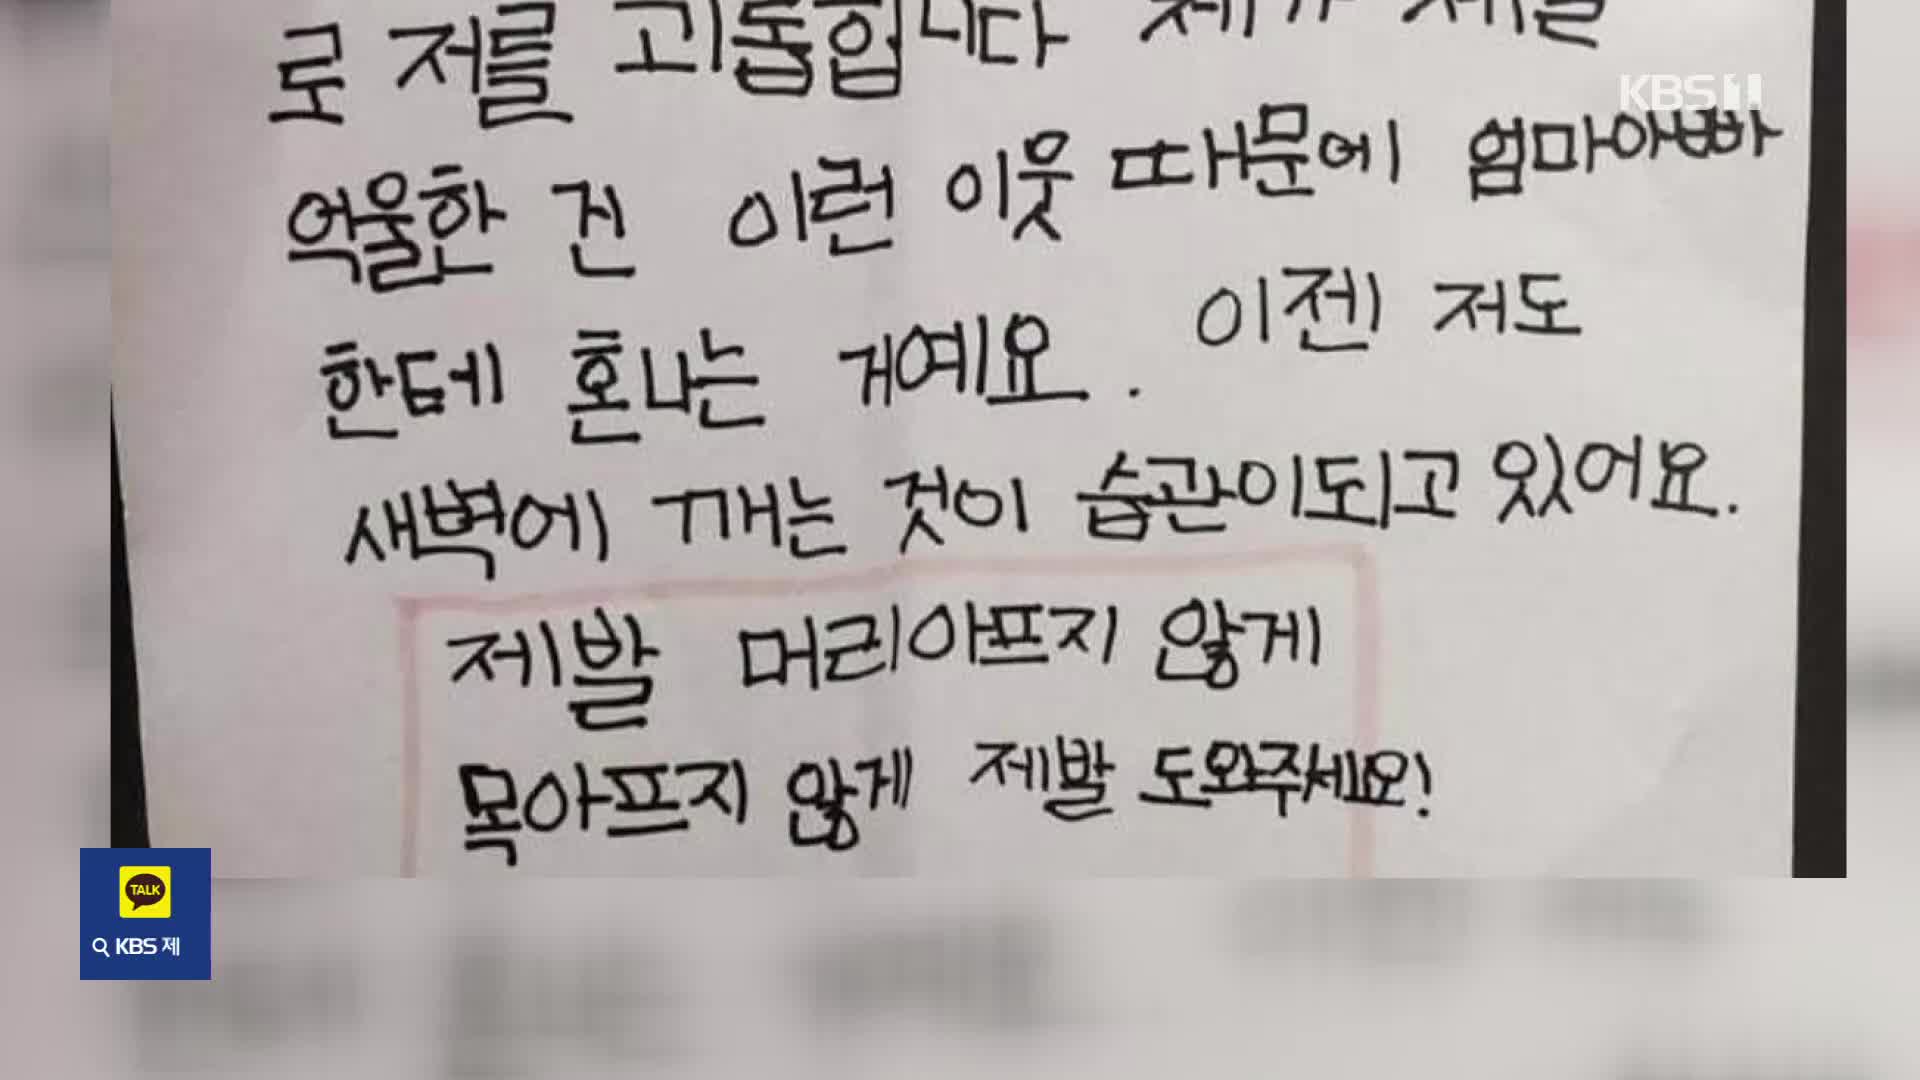 로 저를 괴롭힙니다 제가 제일
억울한 건 이런 이웃 때문에 엄마아빠
한데 혼나는 게예요. 이젠 저도
새벽에 깨는 것이 습관이되고 있어요.
제발 머리아프지 않게
목아프지 않게 제발 도와주세요!
KBS 1
TALK
KBS 제